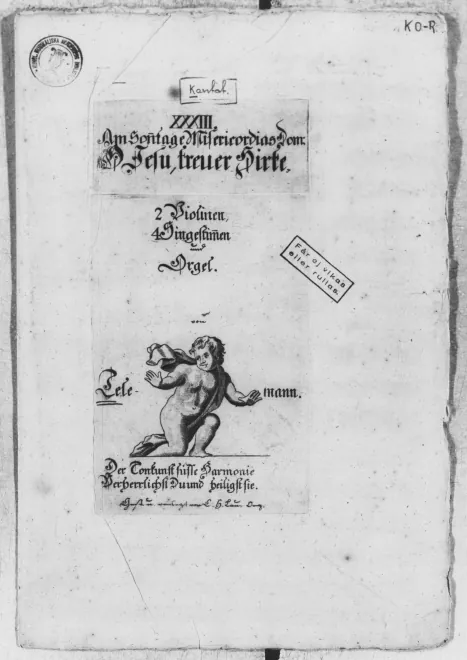 KO-R
Kantat.
XXXIII.
Am Sontage Misericordias Dom:
O Jesu, treuer Hirte.
2 Violinen,
4 Singestimen
und
Orgel.
Får ej vikas
eller rullas.
von
Tele- mann.
Der Tonkunst süsse Harmonie
Verherrlichst Du und heiligst sie.